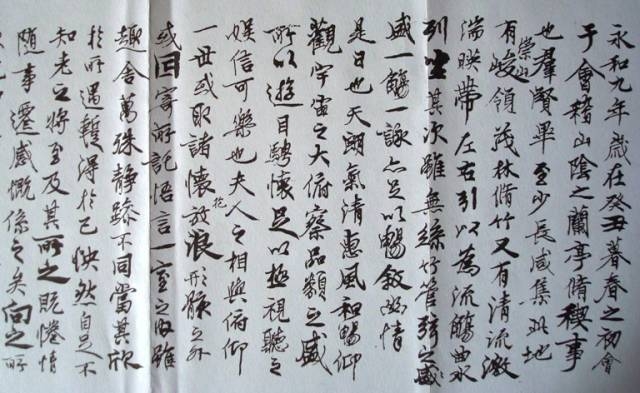 永和九年歲在癸丑暮春之初會
于會稽山陰之蘭亭脩稧事
也羣賢畢至少長咸集此地
有崇山峻領茂林脩竹又有清流激
湍暎帶左右引以為流觴曲水
列坐其次雖無絲竹管弦之盛
盛一觴一詠亦足以暢敘幽情
是日也天朗氣清惠風和暢仰
觀宇宙之大俯察品類之盛
所以遊目騁懷足以極視聽之
娛信可樂也夫人之相與俯仰
一世或取諸懷抱放浪形骸之外
或因寄所託悟言一室之內雖
趣舍萬殊靜躁不同當其欣
於所遇蹔得於己怏然自足不
知老之將至及其所之既惓情
隨事遷感慨係之矣向之所